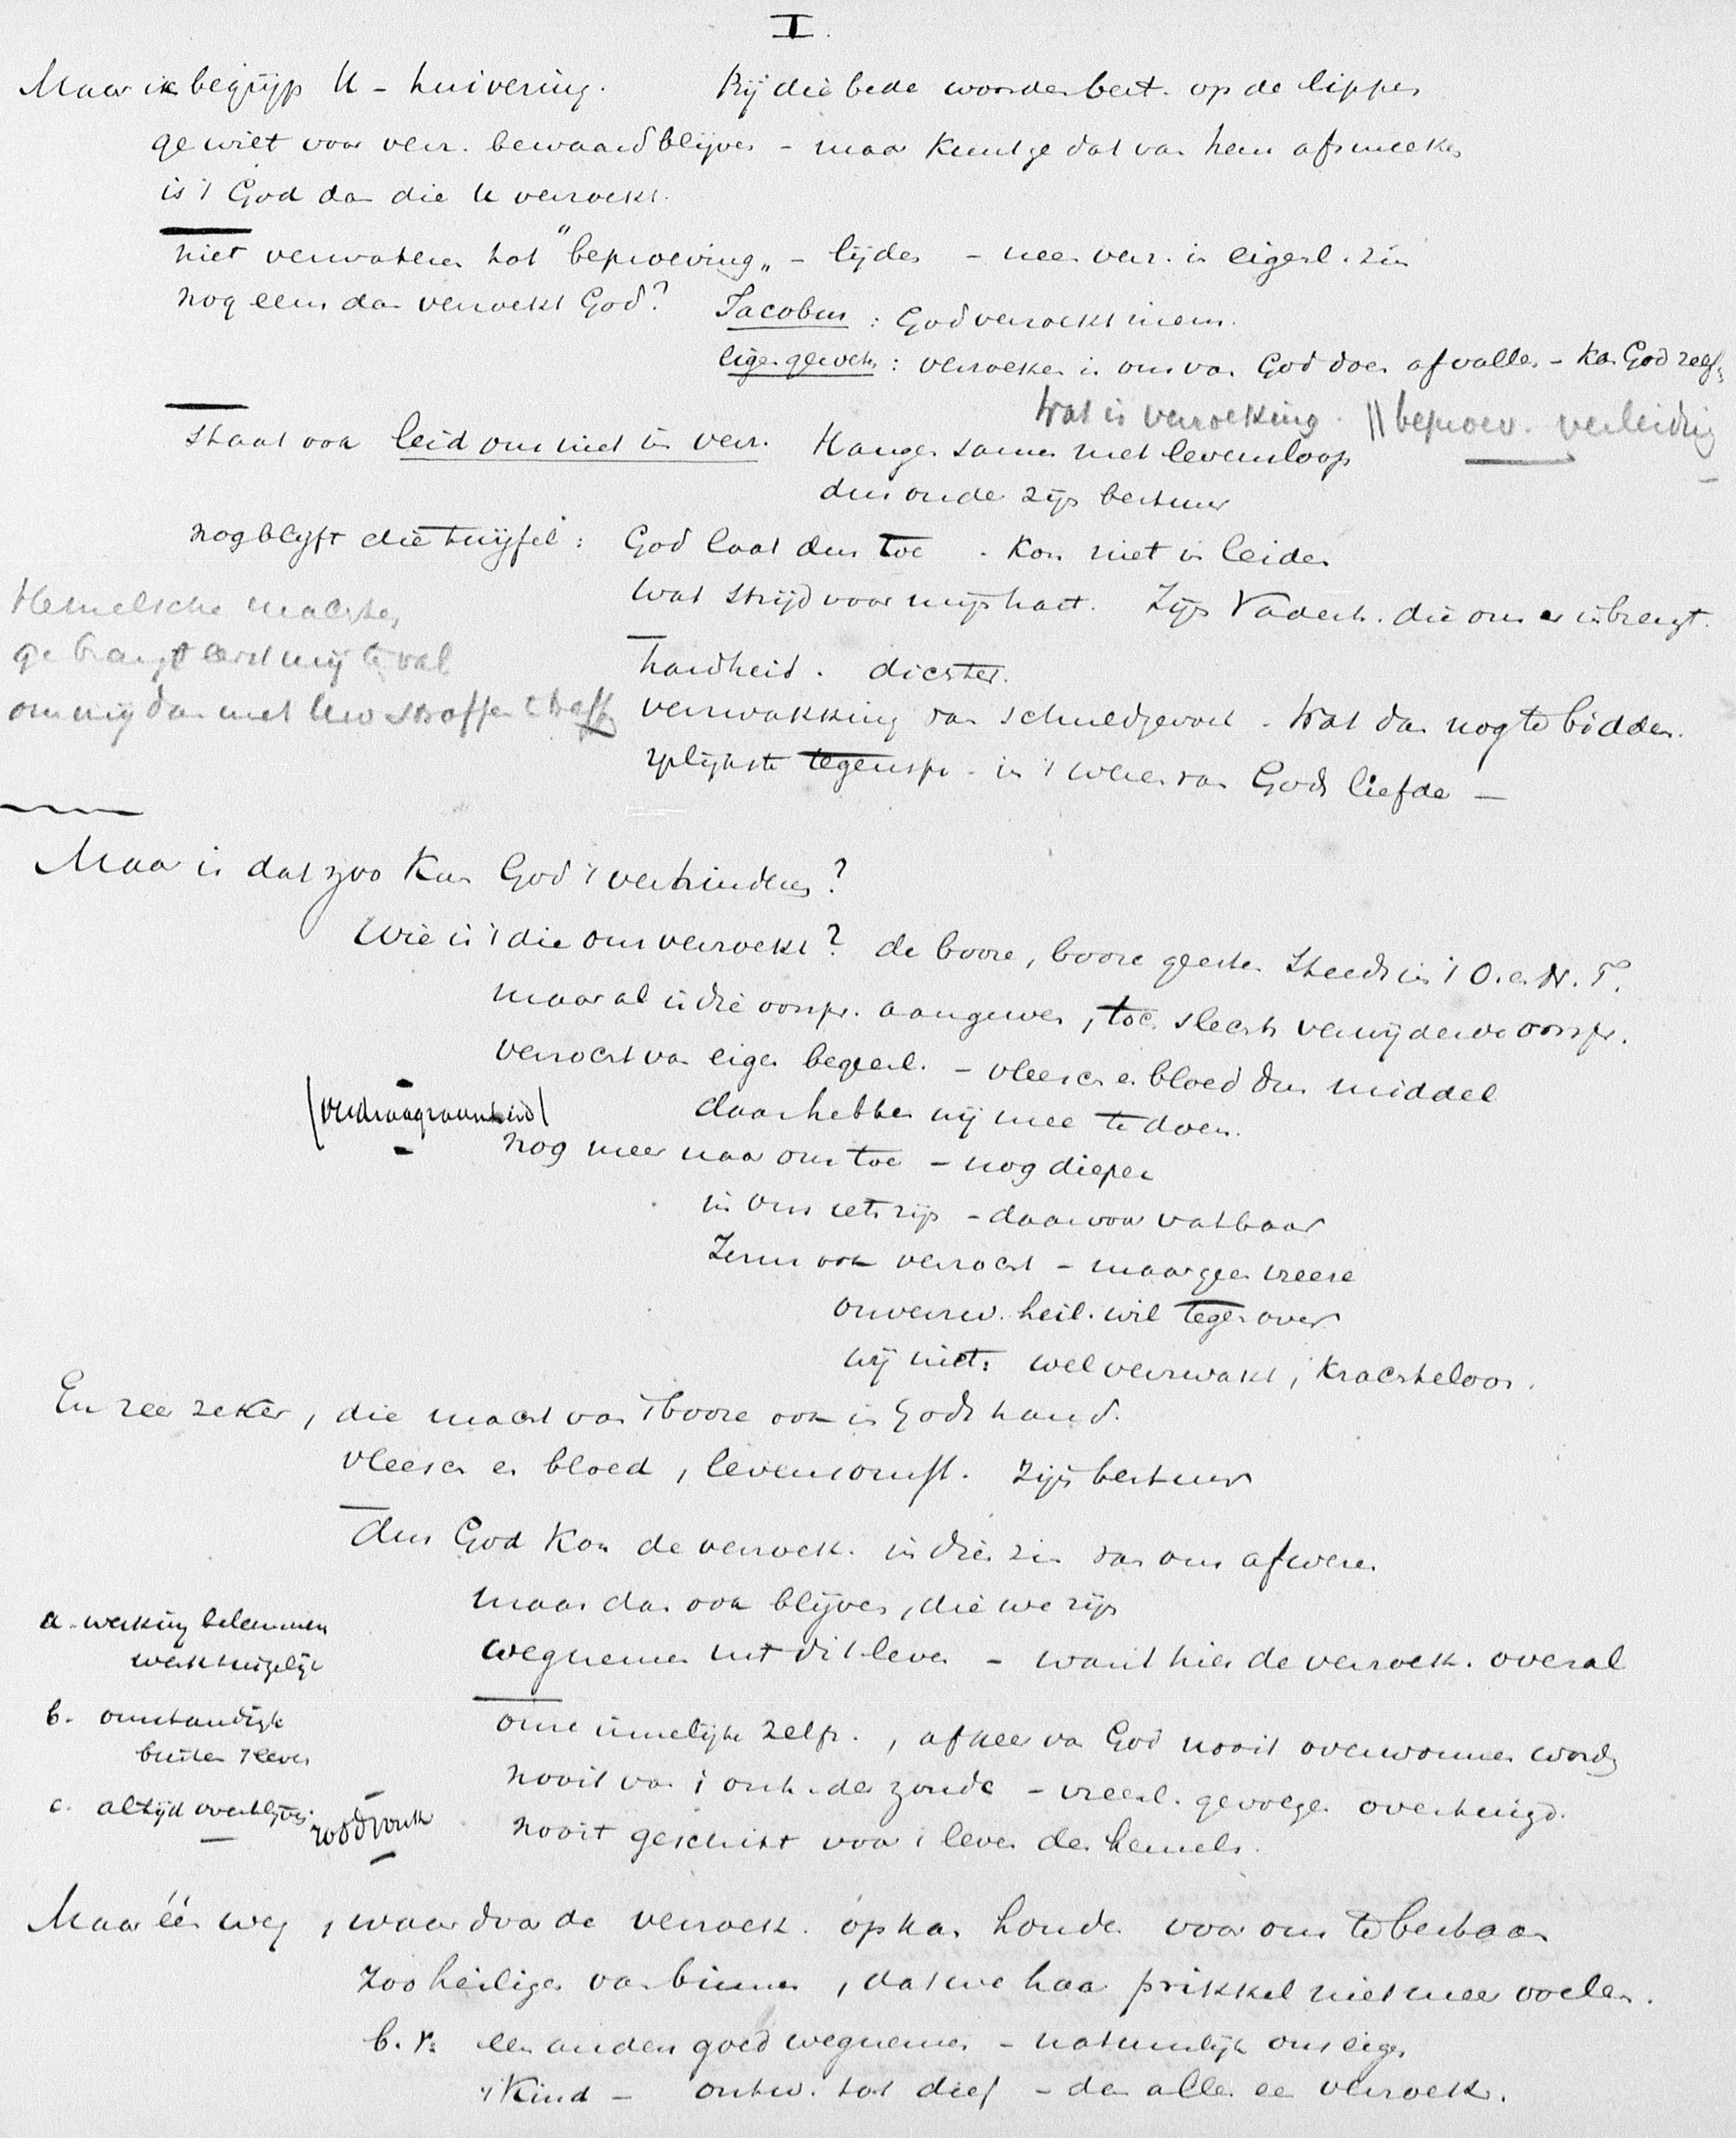 I.
Maar ik begrijp U - huivering. Bij die bede word. best. op de lippen
ge wilt voor verz. bewaard blijven - maar kunt ge dat van hem afsmeeken
is 't God dan die U verzoekt.
niet verwateren tot "beproeving" - lijden - neen verz. in eigenl. zin
nog eens dan verzoekt God? Jacobus: God verzoekt niem.
eigen gewet.: verzoeken is ons van God doen afvallen - kan God zelf
Wat is verzoeking. || beproev. verleiding
staat ook leid ons niet in verz. Hangen samen met levensloop
dus onder zijn bestuur
nog blijft die twijfel: God laat dus toe. Kon niet in leiden
wat strijd voor mijn hart. Zijn Vaderh. die ons er in brengt.
Hemelsche machten,
ge brengt eerst mij te val
om mij dan met Uw straffen te treff
hardheid. dichter.
verzwakking van schuldgevoel. Wat dan nog te bidden.
tegenspr. in 't wezen van Gods liefde -
Maar is dat zoo Kan God 't verhinderen?
Wie is 't die ons verzoekt? de booze, booze geesten steeds in 't O. en N. T.
maar al is die oorspr. aangewezen, toch slechts verwijderde oorspr.
verzocht van eigen begeerl. - vleesch en bloed dus middel
(verdraagzaamheid) daar hebben wij mee te doen.
nog meer naar ons toe - nog dieper
in ons iets zijn - daarvoor vatbaar
Jezus ook verzocht - maar geen vreeze
onverzw. heil. wil tegenover
wij niet: wel verzwakt, krachteloos.
En zeer zeker, die macht van 't booze ook in Gods hand.
vleesch en bloed, levensomst. zijn bestuur
dus God kon de verzoek. in dien zin van ons afweren
maar dan ook blijven, die we zijn
a. werking belemmeren
werktuigelijk
wegnemen uit dit leven - want hier de verzoek. overal
b. omstandigh
buiten 't leven
onze innerlijke zelfz., afkeer van God nooit overwonnen worden
nooit van 't ontst. der zonde - vreesel. gevolgen overtuigd.
c. altijd overblijven
noodzonk
nooit geschikt voor 't leven des hemels.
Maar één weg, waardoor de verzoek. op kan houden voor ons te bestaan
zoo heiligen van binnen, dat we haar prikkel niet meer voelen.
b.v. een anders goed wegnemen - natuurlijk ons eigen
't Kind - ontw. tot dief - den ander een verzoek.